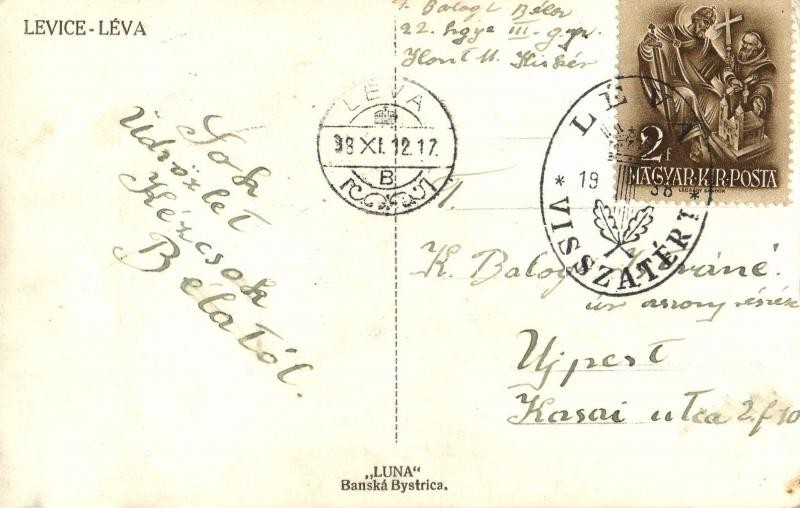 LEVICE - LÉVA
F. Balogh Béla
22. hgye III-
Hont M. Kiskér
2f
MAGYAR·KIR·POSTA
LÉVA
38 XI. 12. 17
B
LÉVA
* 19 38 *
VISSZATÉRT
Sok
Üdvözlet
Kézcsok
Bélától.
T.
K. Balogh
úr asszony részére
Ujpest
Kasai utca 2. f 10
„LUNA“
Banská Bystrica.